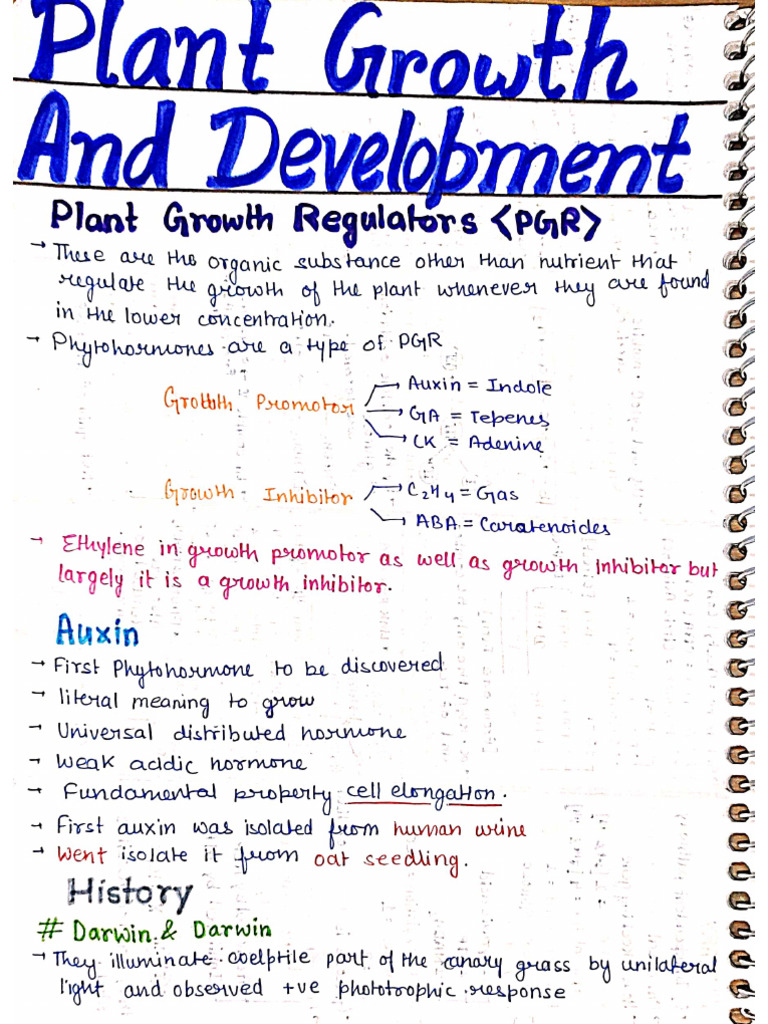 Plant Growth
And Development
Plant Growth Regulators <PGR>
→ These are the organic substance other than nutrient that
regulate the growth of the plant whenever they are found
in the lower concentration.
→ Phytohormones are a type of PGR
Growth Promotor → Auxin = Indole
→ GA = Tepenes
→ CK = Adenine
Growth Inhibitor → C2H4 = Gas
→ ABA = Caratenoides
→ Ethylene in growth promotor as well as growth inhibitor but
largely it is a growth inhibitor.
Auxin
→ First Phytohormone to be discovered
→ literal meaning to grow
→ Universal distributed hormone
→ Weak acidic hormone
→ Fundamental property cell elongation.
→ First auxin was isolated from human urine
→ Went isolate it from oat seedling.
History
# Darwin & Darwin
→ They illuminate coelptile part of the canary grass by unilateral
light and observed +ve phototrophic response